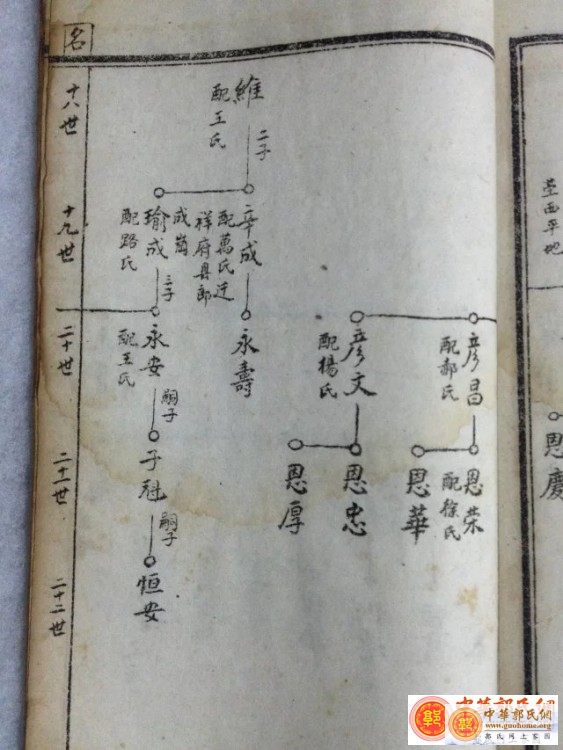 名
十八世
維
配王氏
二子
十九世
辛成
配萬氏迁
祥府县郎
成崗
瑜成
配路氏
三子
二十世
彦昌
配郝氏
彦文
配楊氏
永壽
永安
配王氏
嗣子
二十一世
恩荣
配徐氏
恩華
恩忠
恩厚
子魁
嗣子
二十二世
恒安
茔西平地
恩慶
中華郭氏網
www.guohome.org
郭氏网上家园